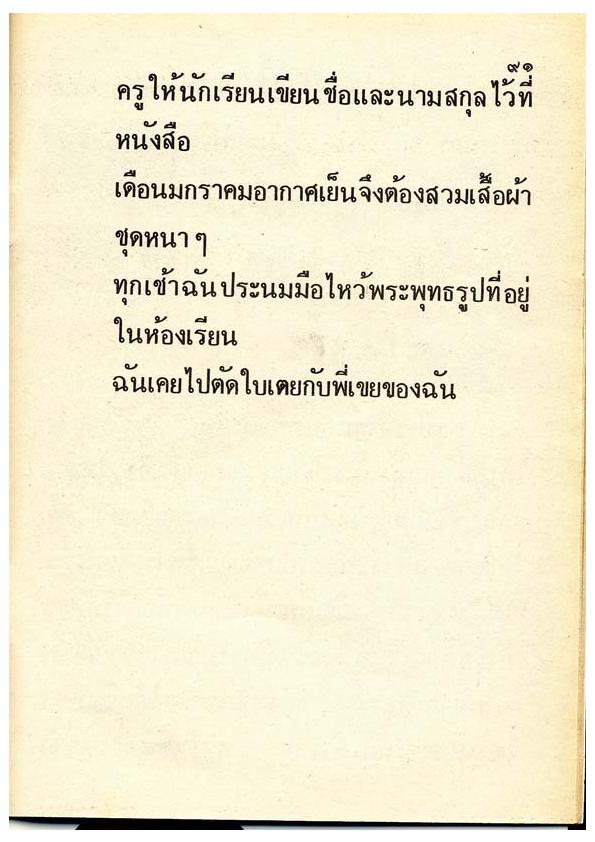 ๙๑
ครูให้นักเรียนเขียนชื่อและนามสกุลไว้ที่
หนังสือ
เดือนมกราคมอากาศเย็นจึงต้องสวมเสื้อผ้า
ชุดหนา ๆ
ทุกเช้าฉันประนมมือไหว้พระพุทธรูปที่อยู่
ในห้องเรียน
ฉันเคยไปตัดใบเตยกับพี่เขยของฉัน